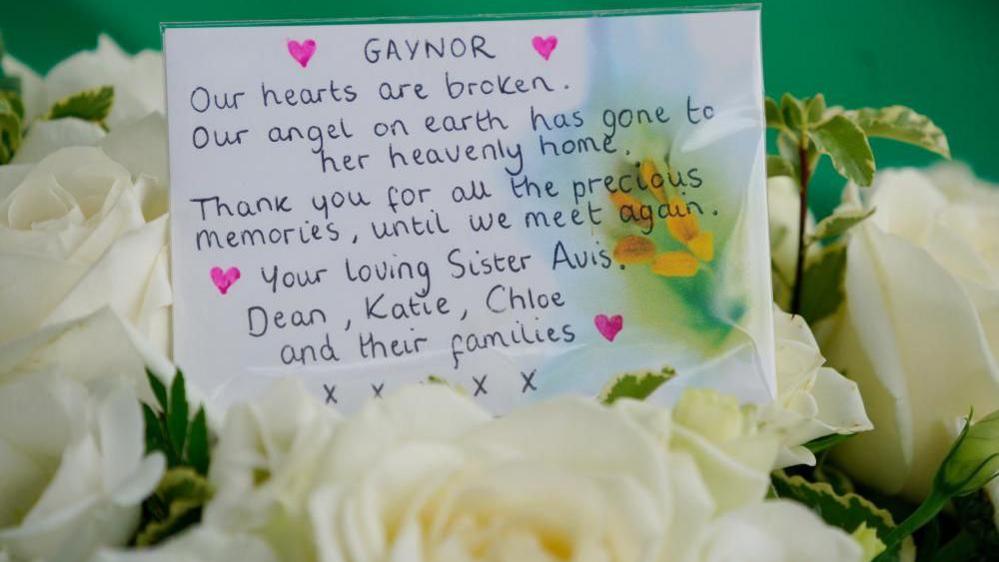 GAYNOR
Our hearts are broken.
Our angel on earth has gone to
her heavenly home.
Thank you for all the precious
memories, until we meet again.
Your loving Sister Avis.
Dean, Katie, Chloe
and their families
x x x x